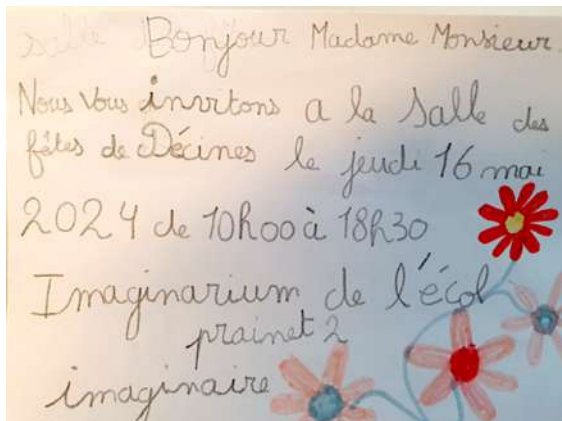 salle Bonjour Madame Monsieur.
Nous Vous invitons a la salle des
fêtes de Décines le jeudi 16 mai
2024 de 10h00 à 18h30
Imaginarium de l'écol
prainet 2
imaginaire